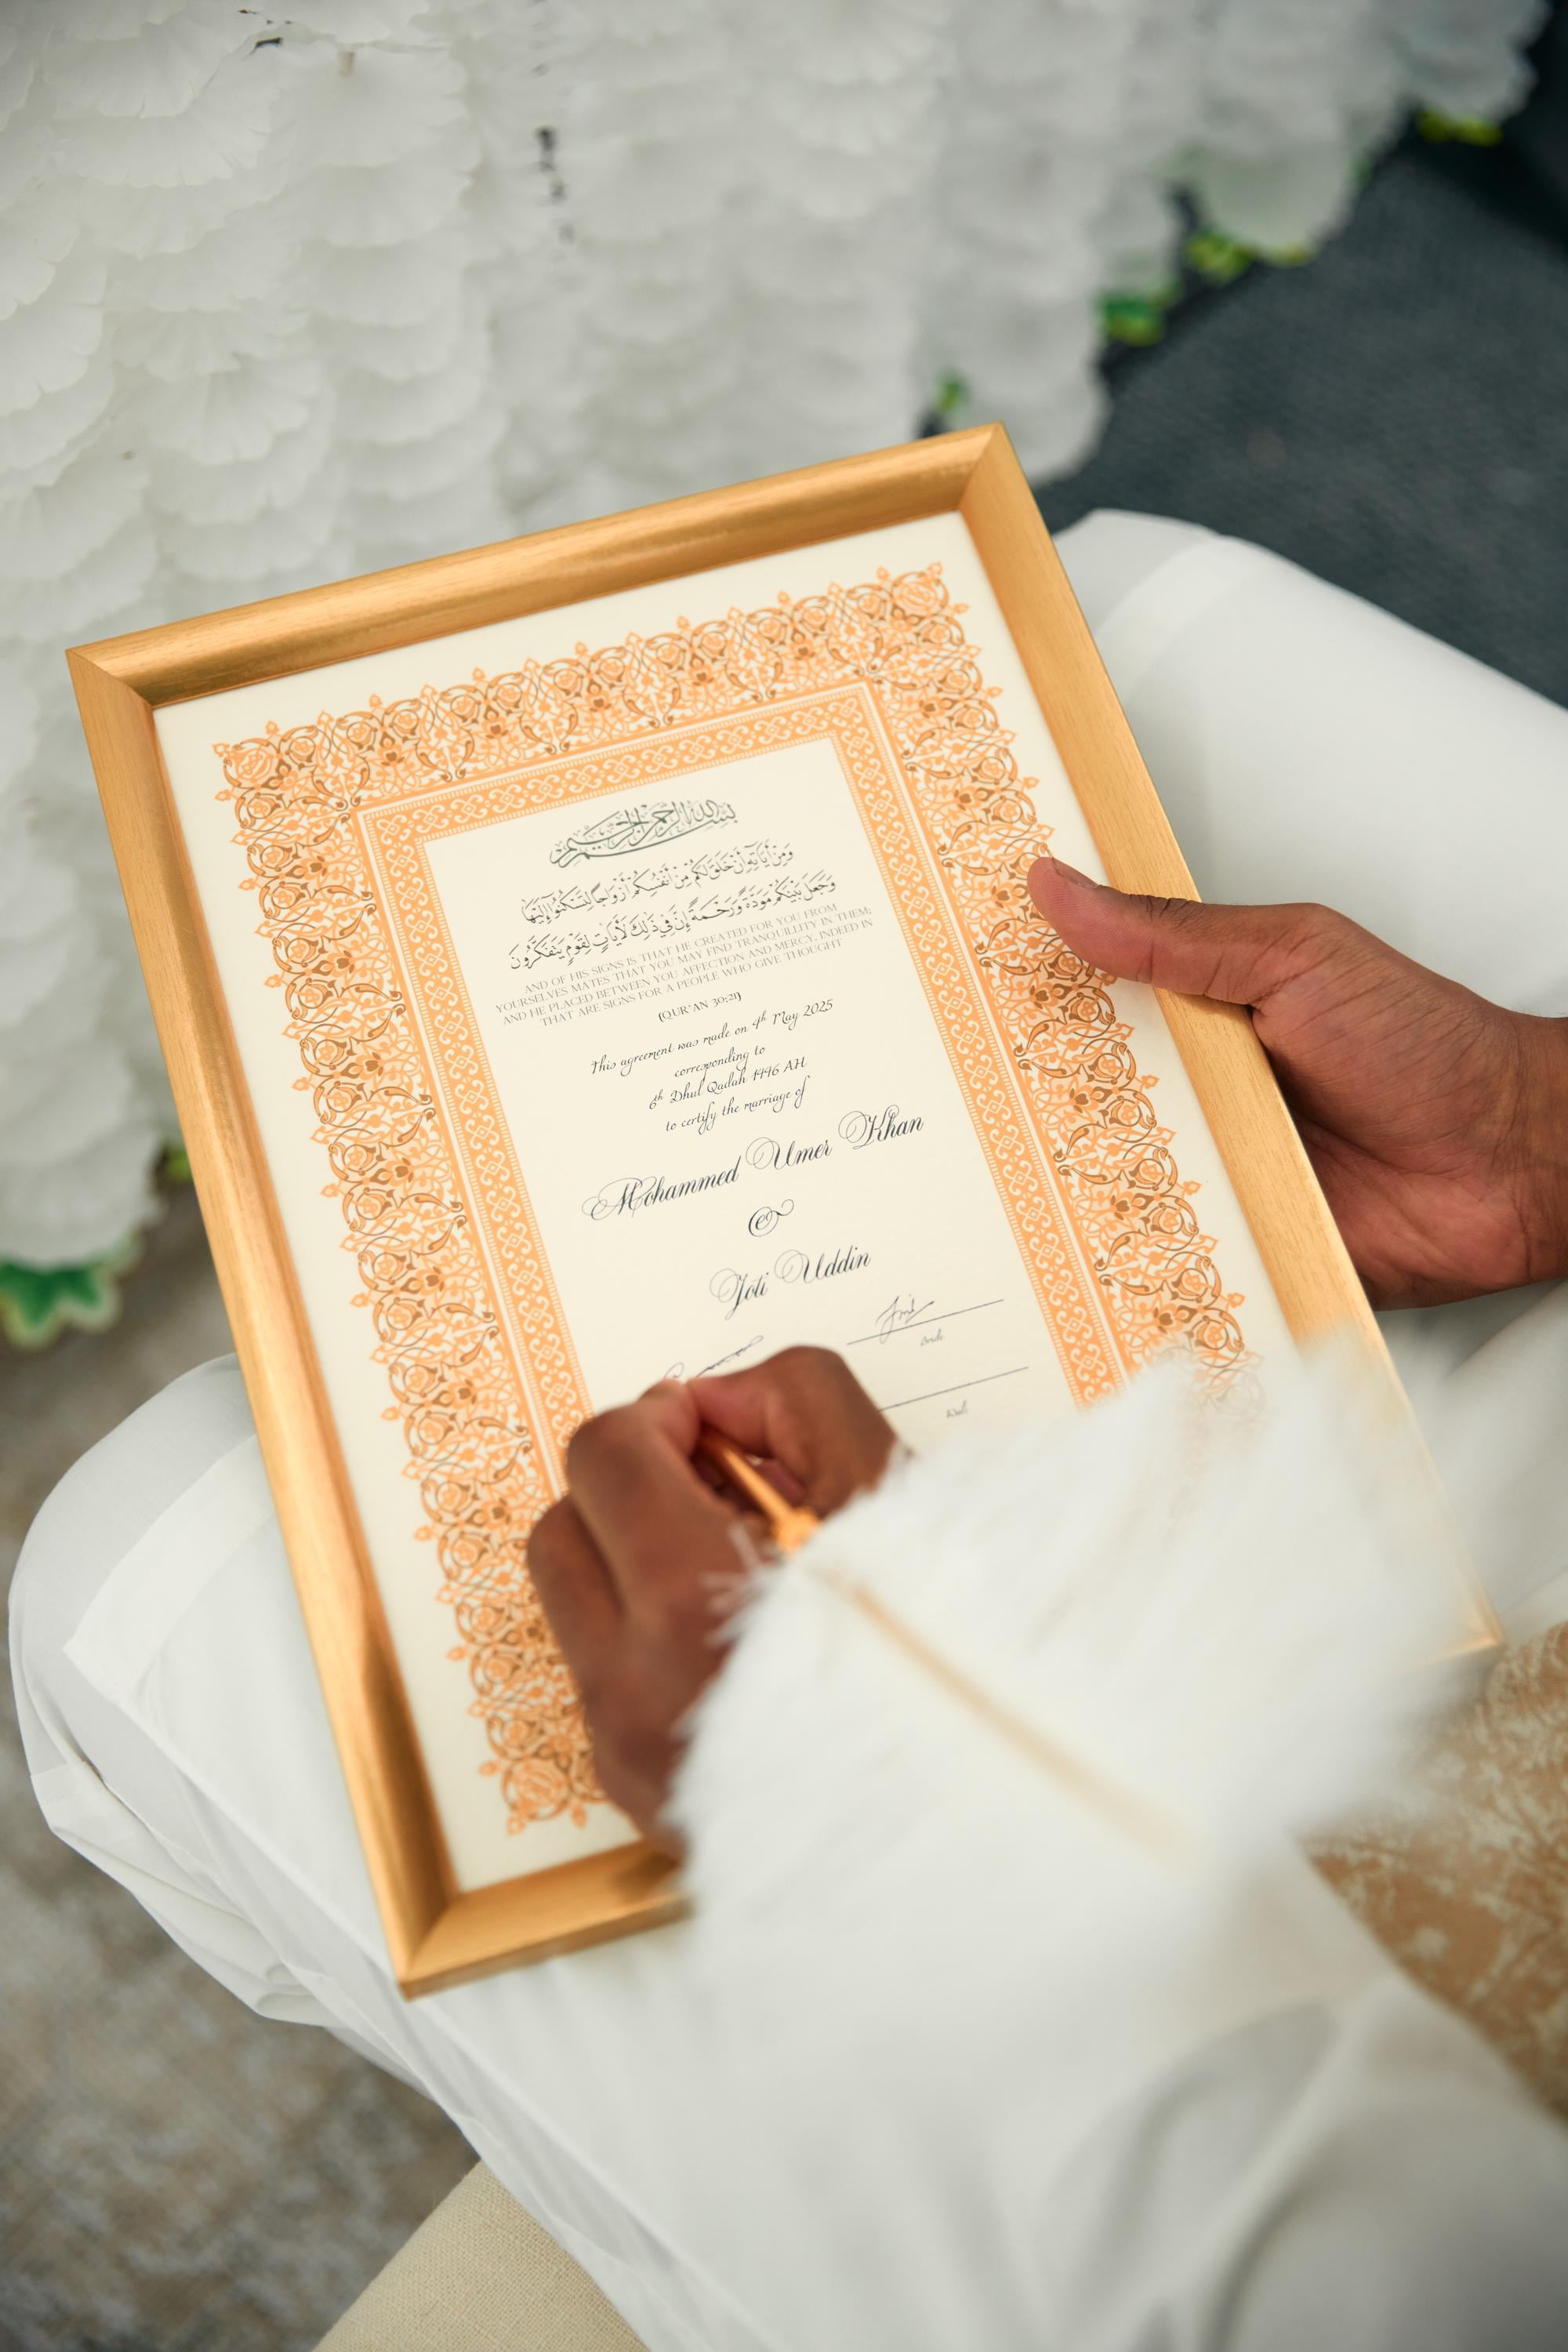 بسم الله الرحمن الرحيم
وَمِنْ آيَاتِهِ أَنْ خَلَقَ لَكُم مِّنْ أَنفُسِكُمْ أَزْوَاجًا لِّتَسْكُنُوا إِلَيْهَا
وَجَعَلَ بَيْنَكُم مَّوَدَّةً وَرَحْمَةً إِنَّ فِي ذَٰلِكَ لَآيَاتٍ لِّقَوْمٍ يَتَفَكَّرُونَ
AND OF HIS SIGNS IS THAT HE CREATED FOR YOU FROM
YOURSELVES MATES THAT YOU MAY FIND TRANQUILLITY IN THEM;
AND HE PLACED BETWEEN YOU AFFECTION AND MERCY. INDEED IN
THAT ARE SIGNS FOR A PEOPLE WHO GIVE THOUGHT
[QUR'AN 30:21]
This agreement was made on 4th May 2025
corresponding to
6th Dhul Qadah 1446 AH
to certify the marriage of
Mohammed Umer Khan
&
Joti Uddin
Bride
Wali